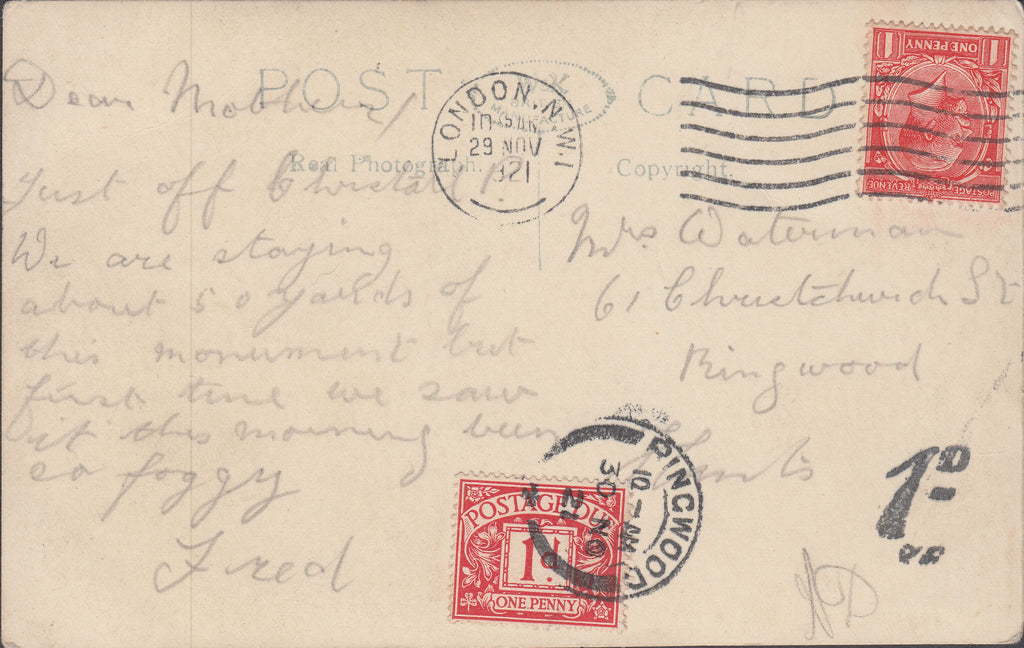 POST CARD
Real Photograph.
Copyright.
Dear Mother/
Just off Chrstal P.
We are staying
about 50 yards of
this monument but
first time we saw
it this morning been
so foggy
Fred
Mrs Waterman
61 Christchurch St
Ringwood
Hants
LONDON. N.W.1
10 15 AM
29 NOV
1921
ONE PENNY
POSTAGE
REVENUE
POSTAGE DUE
1d.
ONE PENNY
RINGWOOD
10 7 AM
30 NO
21
1D